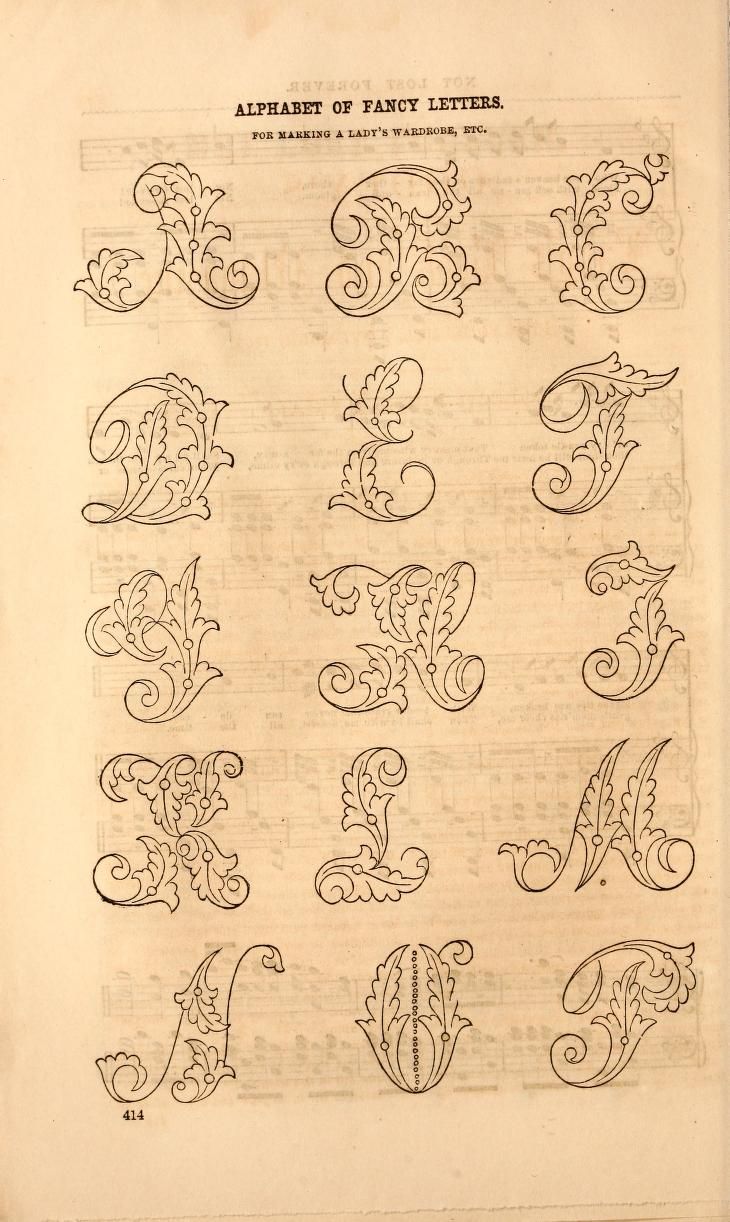 ALPHABET OF FANCY LETTERS.
FOR MARKING A LADY'S WARDROBE, ETC.
A B C
D E F
G H I
K L M
N O P
414